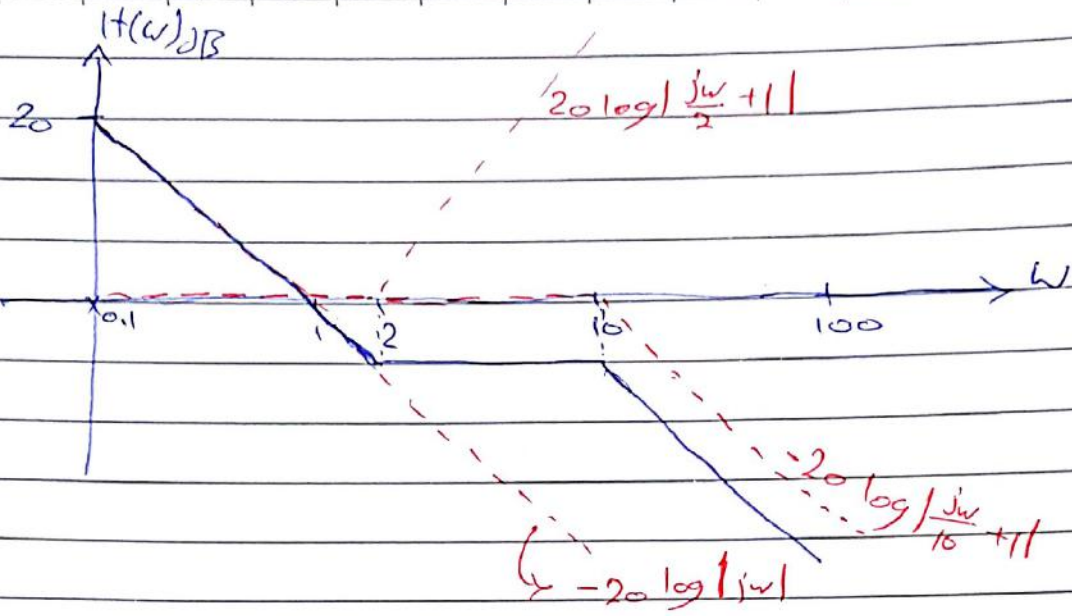 H(w)dB
20
20 log|jw/2 +1|
w
0.1
1
2
10
100
-20 log|jw/10 +1|
-20 log|jw|